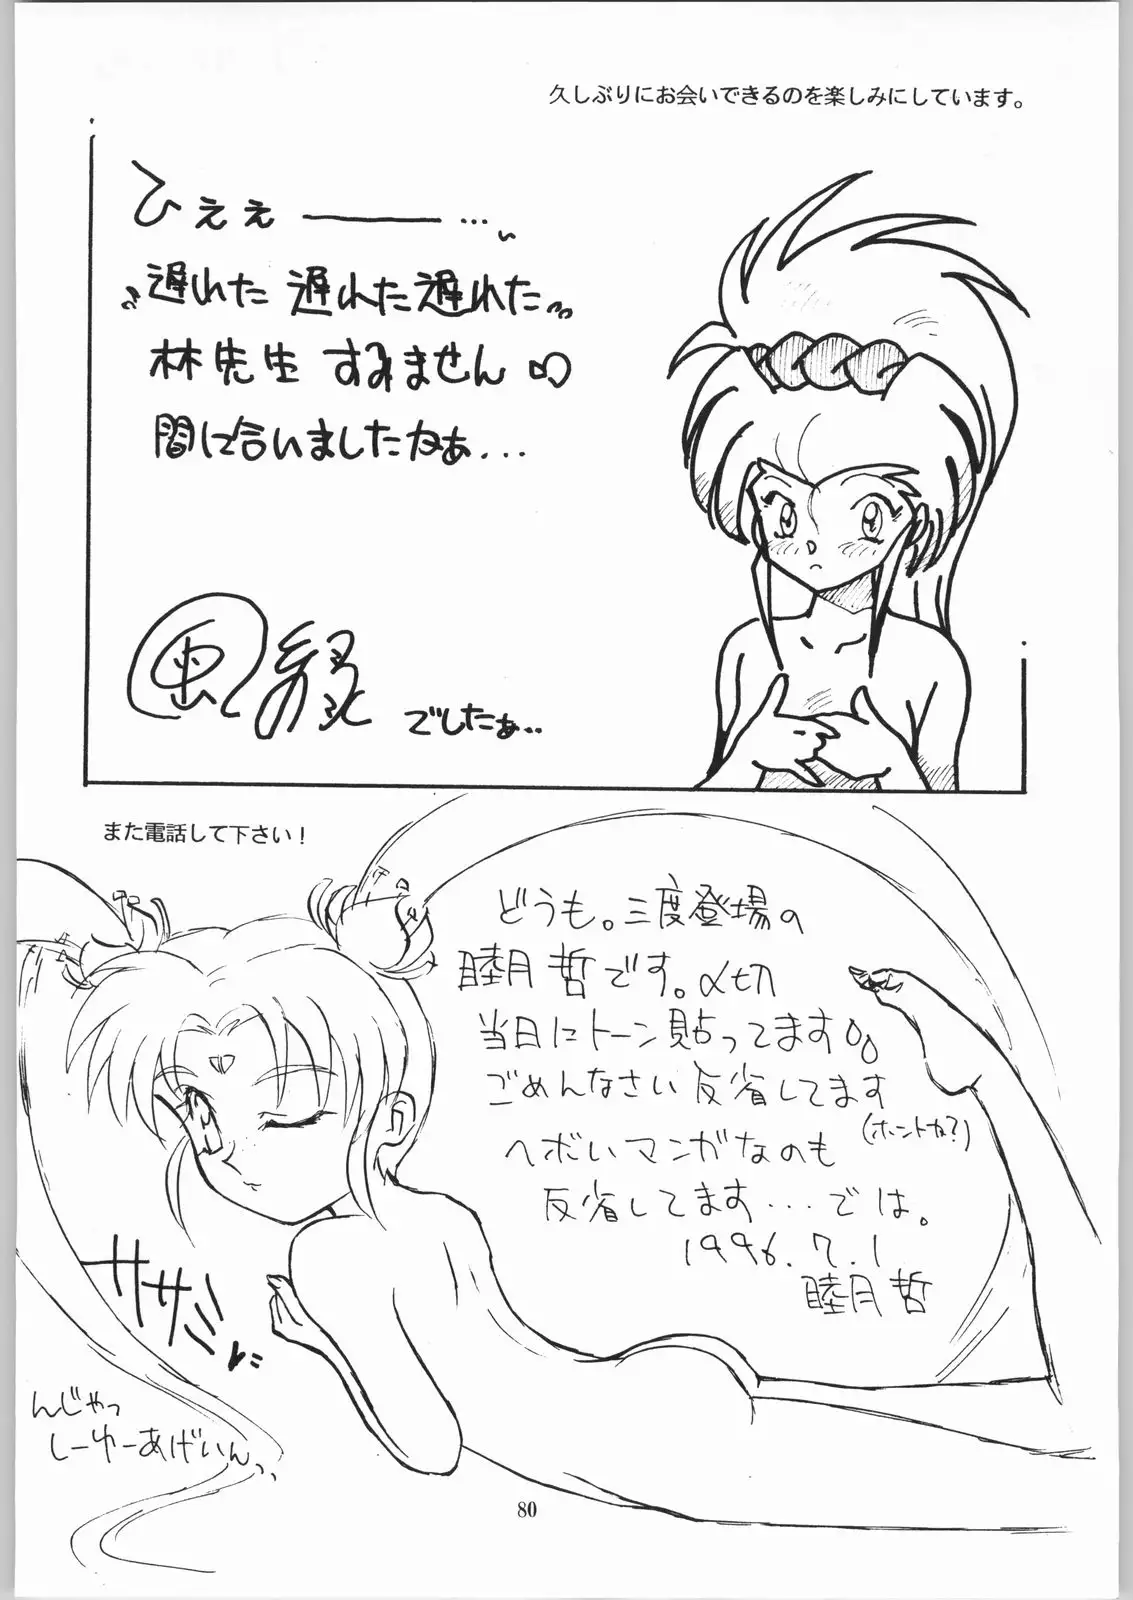 久しぶりにお会いできるのを楽しみにしています。
ひぇぇ――…
遅れた 遅れた 遅れた
林先生 すみません
間に合いましたかぁ...
風
でしたぁ…
また電話して下さい！
どうも。三度登場の
睦月 哲です。〆切
当日にトーン貼ってます
ごめんなさい 反省してます
(ホントか?)
ヘボいマンガなのも
反省してます...では。
1996.7.1
睦月 哲
ササミ
んじゃっ
しーゆーあげいん
80